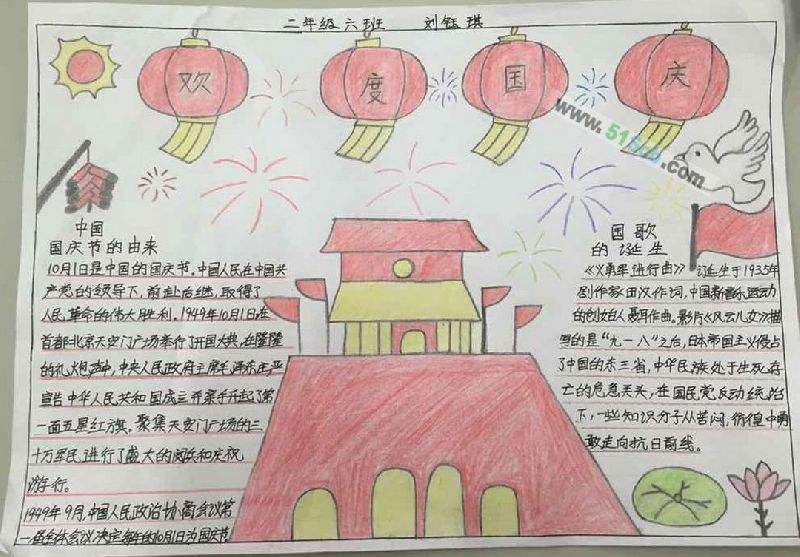 二年级六班 刘钰琪
欢度国庆
www.51
.com
中国
国庆节的由来
10月1日是中国的国庆节。中国人民在中国共
产党的领导下,前赴后继,取得了
人民革命的伟大胜利。1949年10月1日在
首都北京天安门广场举行了开国大典,在隆隆
的礼炮声中,中央人民政府主席毛泽东庄严
宣告中华人民共和国成立并亲手升起了第
一面五星红旗。聚集天安门广场的三
十万军民进行了盛大的阅兵和庆祝
游行。
1949年9月,中国人民政治协商会议第
一届全体会议决定每年的10月1日为国庆节
国歌
的诞生
《义勇军进行曲》诞生于1935年
剧作家田汉作词,中国新音乐运动
的创始人聂耳作曲。影片《风云儿女》描
写的是“九一八”之后,日本帝国主义侵占
了中国的东三省,中华民族处于生死存
亡的危急关头,在国民党反动统治
下,一些知识分子从苦闷、彷徨中勇
敢走向抗日前线。